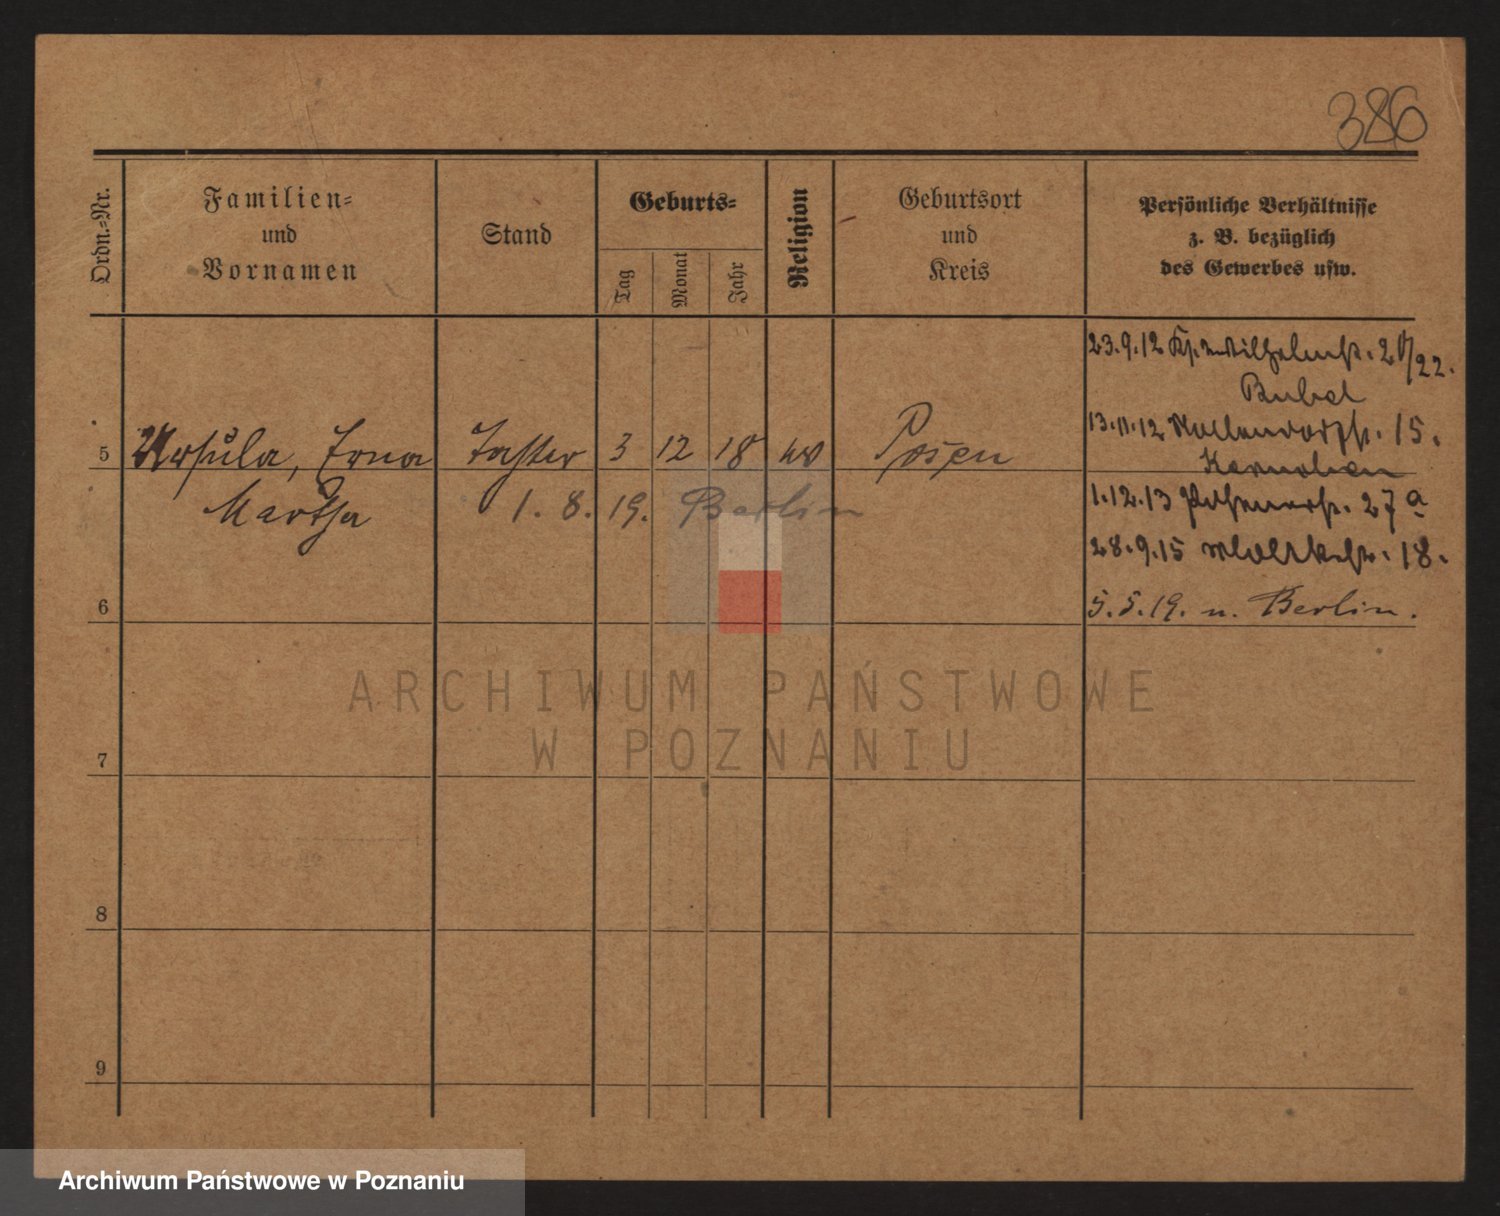 386
Ordn.-Nr.
Familien-
und
Vornamen
Stand
Geburts-
Tag
Monat
Jahr
Religion
Geburtsort
und
Kreis
Persönliche Verhältnisse
z. B. bezüglich
des Gewerbes usw.
23.9.12
13.11.12 15.
5 Ursula, Erna Tochter 3 12 18 Posen
Martha 1. 8. 19. Berlin
1.12.13 27a
28.9.15 Moltkestr. 18.
6
5.5.19. n. Berlin.
ARCHIWUM PAŃSTWOWE
W POZNANIU
7
8
9
Archiwum Państwowe w Poznaniu